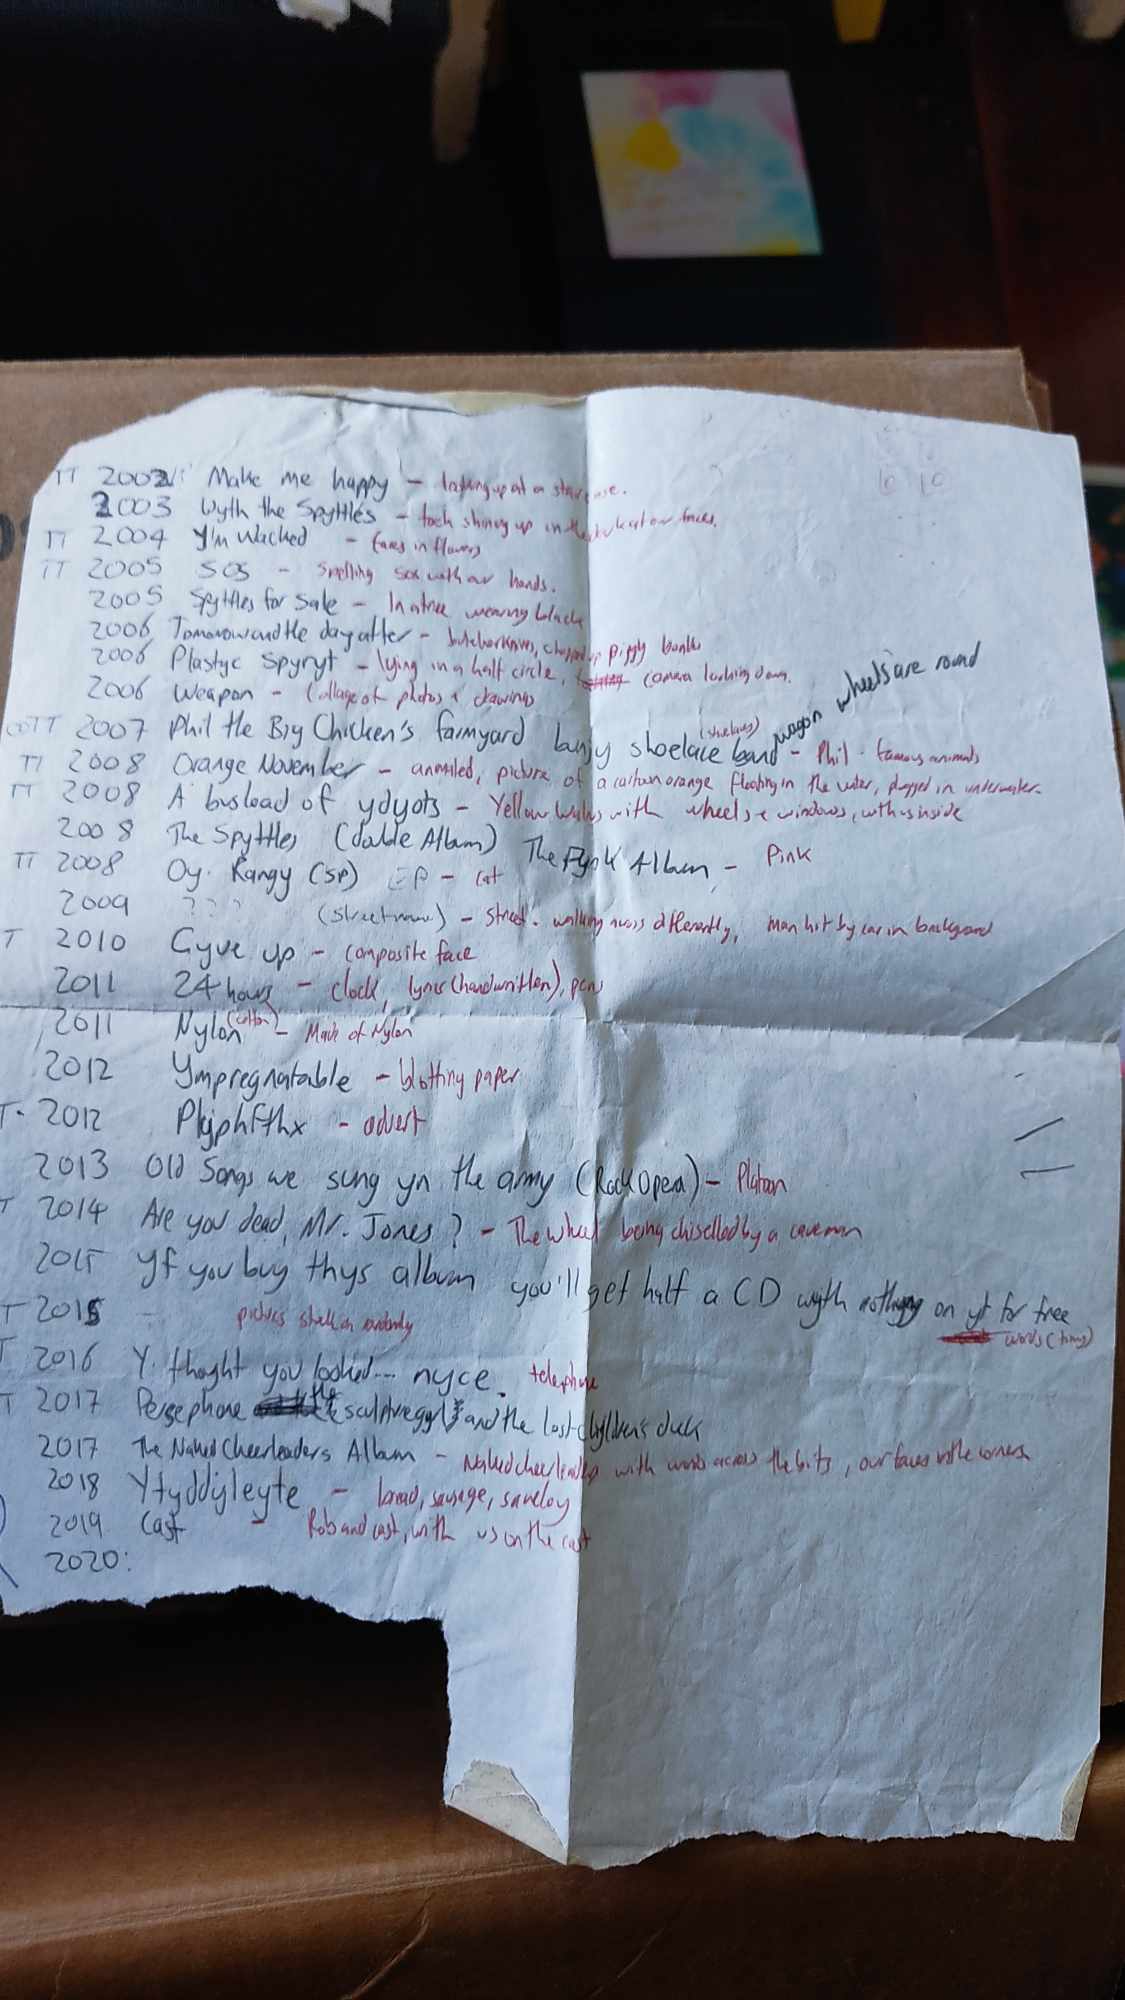 TT 2002: Make me happy - looking up at a staircase.
2003 Wyth the Spyttles - torch shining up in the dark at our faces.
TT 2004 Y'm Wacked - faces in flowers
TT 2005 SOS - Spelling SOS with our hands.
2005 Spyttles for Sale - In a tree wearing black
2006 Tomorow and the day after - butcher knives, chopped up piggy banks
2006 Plastyc Spyryt - lying in a half circle, camera looking down.
2006 Weapon - Collage of photos & drawings
TT 2007 Phil the Big Chicken's farmyard bungy shoelace band wagon wheels are round - Phil - famous animals
(shoelaces)
TT 2008 Orange November - annoiled, picture of a cartoon orange floating in the water, plugged in underwater.
TT 2008 A busload of ydyots - Yellow with wheels & windows, with us inside
2008 The Spyttles (double Album) The Fynk Album - Pink
TT 2008 Oy. Kangy (SP) EP - cat
2009 ??? (Street name) - Street. walking across differently, man hit by car in background
T 2010 Gyve up - composite face
2011 24 hours - clock, lyrics (handwritten), pens
2011 Nylon (cotton) - Made of Nylon
2012 Ympregnatable - blotting paper
T- 2012 Pkjphfthx - advert
2013 Old Songs we sung yn the army (Rock Opera) - Platoon
T 2014 Are you dead, Mr. Jones? - The wheel being chiselled by a caveman
2015 Yf you buy thys album you'll get half a CD wyth nothyng on yt for free
words (tiny)
T 2015 - pictures stuck on randomly
T 2016 Y. thought you looked... nyce. telephone
T 2017 Persephone the sculptureggyl and the lost chyldren's duck
2017 The Naked Cheerleaders Album - Naked cheerleaders with words across the bits, our faces in the corners
2018 Ytyddyleyte - bread, sausage, saveloy
2019 Cast - Rob and cast, with us on the cast
2020: